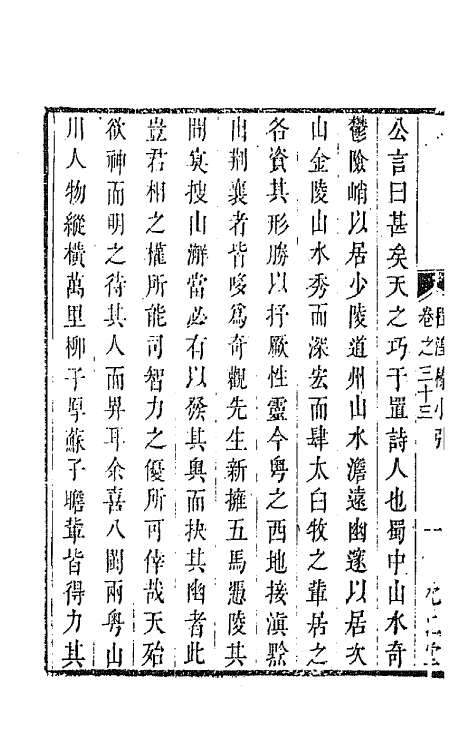 卷之三十三
一
公言曰甚矣天之巧于置詩人也蜀中山水奇
鬱險峭以居少陵道州山水澹遠幽邃以居次
山金陵山水秀而深宏而肆太白牧之輩居之
各資其形勝以抒厥性靈今粵之西地接滇黔
由荆襄者皆唆爲奇觀先生新擁五馬慿陵其
間冥搜山澥當必有以發其奥而抉其幽者此
豈君相之權所能司智力之優所可倖哉天殆
欲神而明之待其人而畀耳余喜八閩兩粤山
川人物縱横萬里柳子厚蘇子瞻輩皆得力其